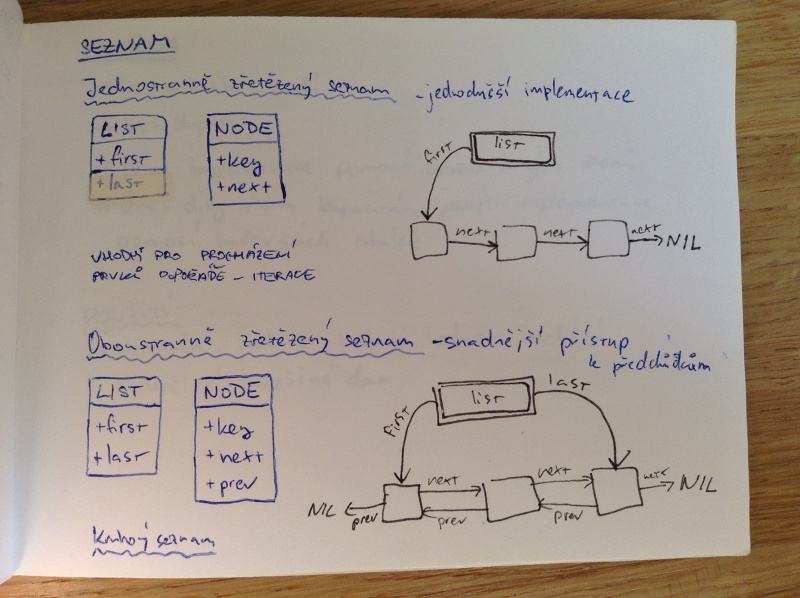 SEZNAM
Jednostranně zřetězený seznam - jednodušší implementace
LIST
+first
+last
NODE
+key
+next
first
list
next
next
next
NIL
VHODNÝ PRO PROCHÁZENÍ
PRVKŮ - ITERACE
Oboustranně zřetězený seznam - snadnější přístup
k předchůdcům
LIST
+first
+last
NODE
+key
+next
+prev
first
list
last
next
next
next
NIL
NIL
prev
prev
prev
Kruhový seznam